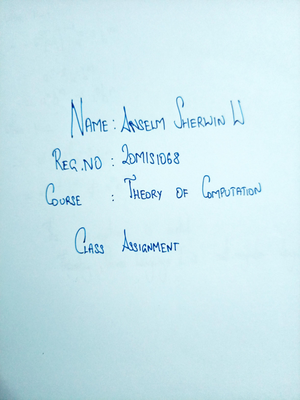 Name : Anselm Sherwin W
Reg.No : 20MIS1068
Course : Theory of Computation
Class Assignment